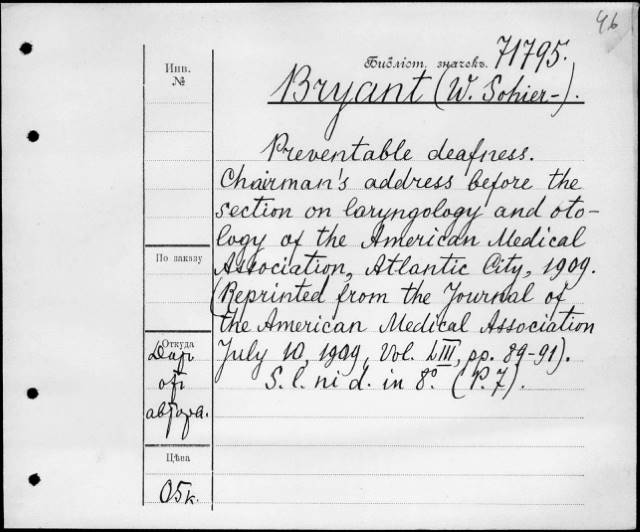 46
Инв.
№
Библіот. значекъ. 71795.
Bryant (W. Sohier-).
Preventable deafness.
Chairman's address before the
section on laryngology and oto-
logy of the American Medical
Association, Atlantic City, 1909.
(Reprinted from the Journal of
the American Medical Association
July 10, 1909, Vol. LIII, pp. 89-91).
S. l. ni d. in 8º (P. 7).
По заказу
Откуда
Даръ
отъ
автора.
Цѣна
05к.